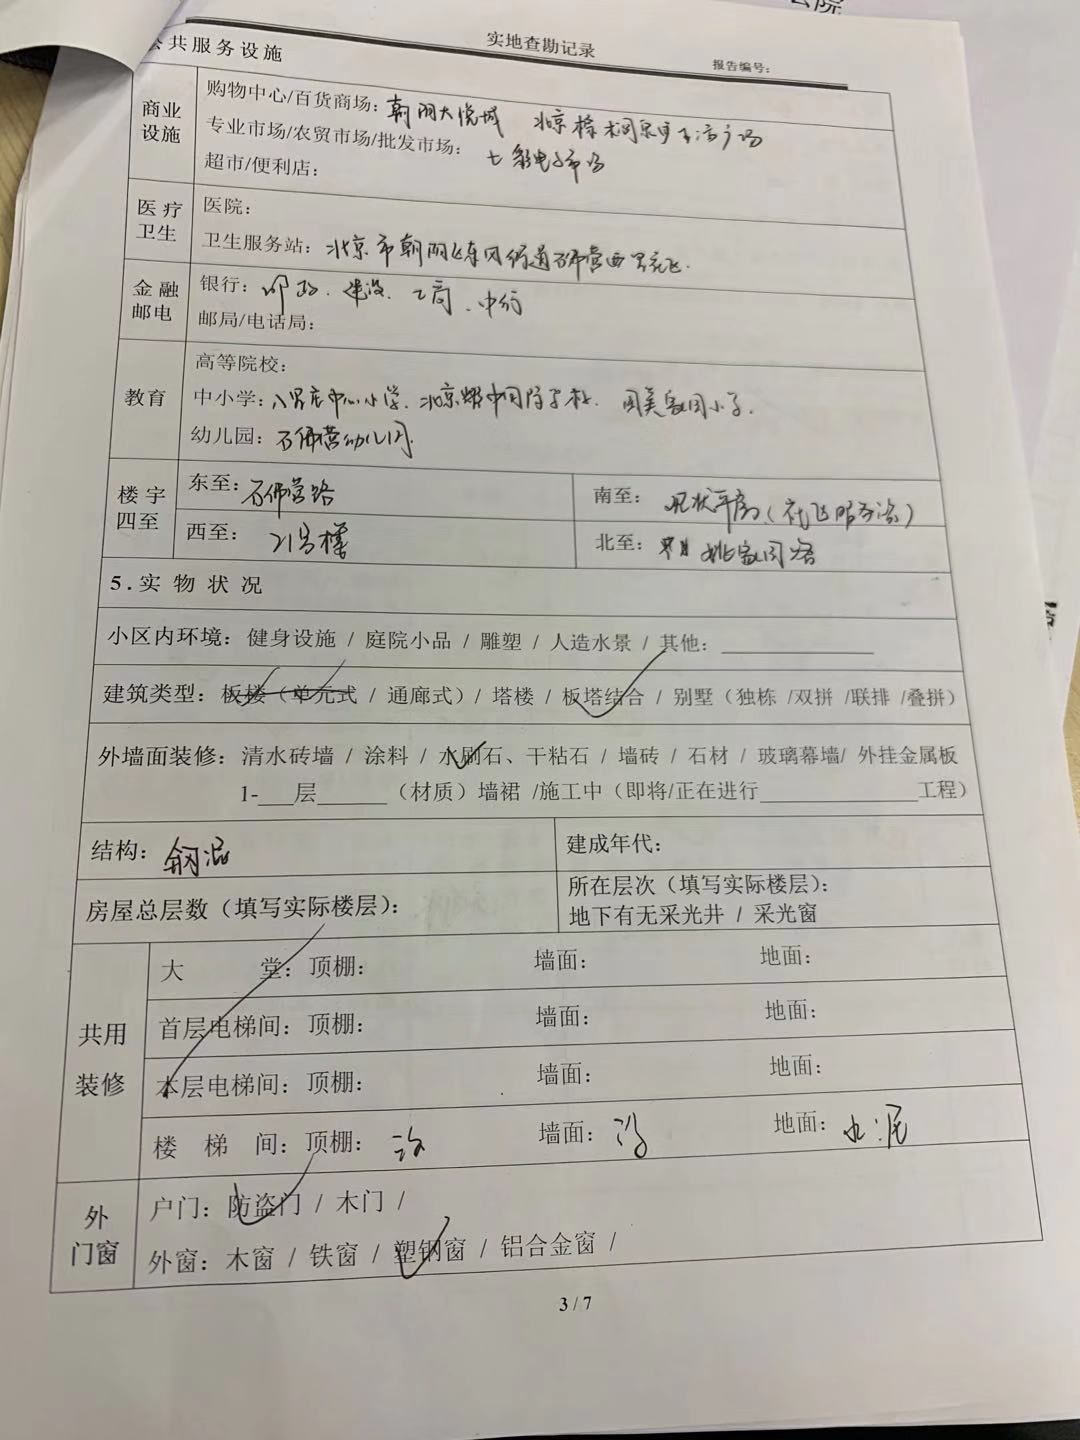 实地查勘记录
报告编号：
公共服务设施
商业设施
购物中心/百货商场：朝阳大悦城 北京
专业市场/农贸市场/批发市场：七彩电子市场
超市/便利店：
医疗卫生
医院：
卫生服务站：北京市朝阳区东风街道石佛营西里社区
金融邮电
银行：邮政、建设、工商、中行
邮局/电话局：
教育
高等院校：
中小学：八里庄中心小学、北京 国际学校、 小学.
幼儿园：石佛营幼儿园
楼宇四至
东至：石佛营路
南至：现状平房（社区服务 ）
西至：21号楼
北至：姚家园路
5.实物状况
小区内环境：健身设施 / 庭院小品 / 雕塑 / 人造水景 / 其他：
建筑类型：板楼（单元式 / 通廊式）/ 塔楼 / 板塔结合 / 别墅（独栋 /双拼 /联排 /叠拼）
外墙面装修：清水砖墙 / 涂料 / 水刷石、干粘石 / 墙砖 / 石材 / 玻璃幕墙/ 外挂金属板
1-___层______（材质）墙裙 /施工中（即将/正在进行______________工程）
结构：钢混
建成年代：
房屋总层数（填写实际楼层）：
所在层次（填写实际楼层）：
地下有无采光井 / 采光窗
共用装修
大 堂：顶棚： 墙面： 地面：
首层电梯间：顶棚： 墙面： 地面：
本层电梯间：顶棚： 墙面： 地面：
楼 梯 间：顶棚： 墙面： 地面：水泥
外门窗
户门：防盗门 / 木门 /
外窗：木窗 / 铁窗 / 塑钢窗 / 铝合金窗 /
3 / 7